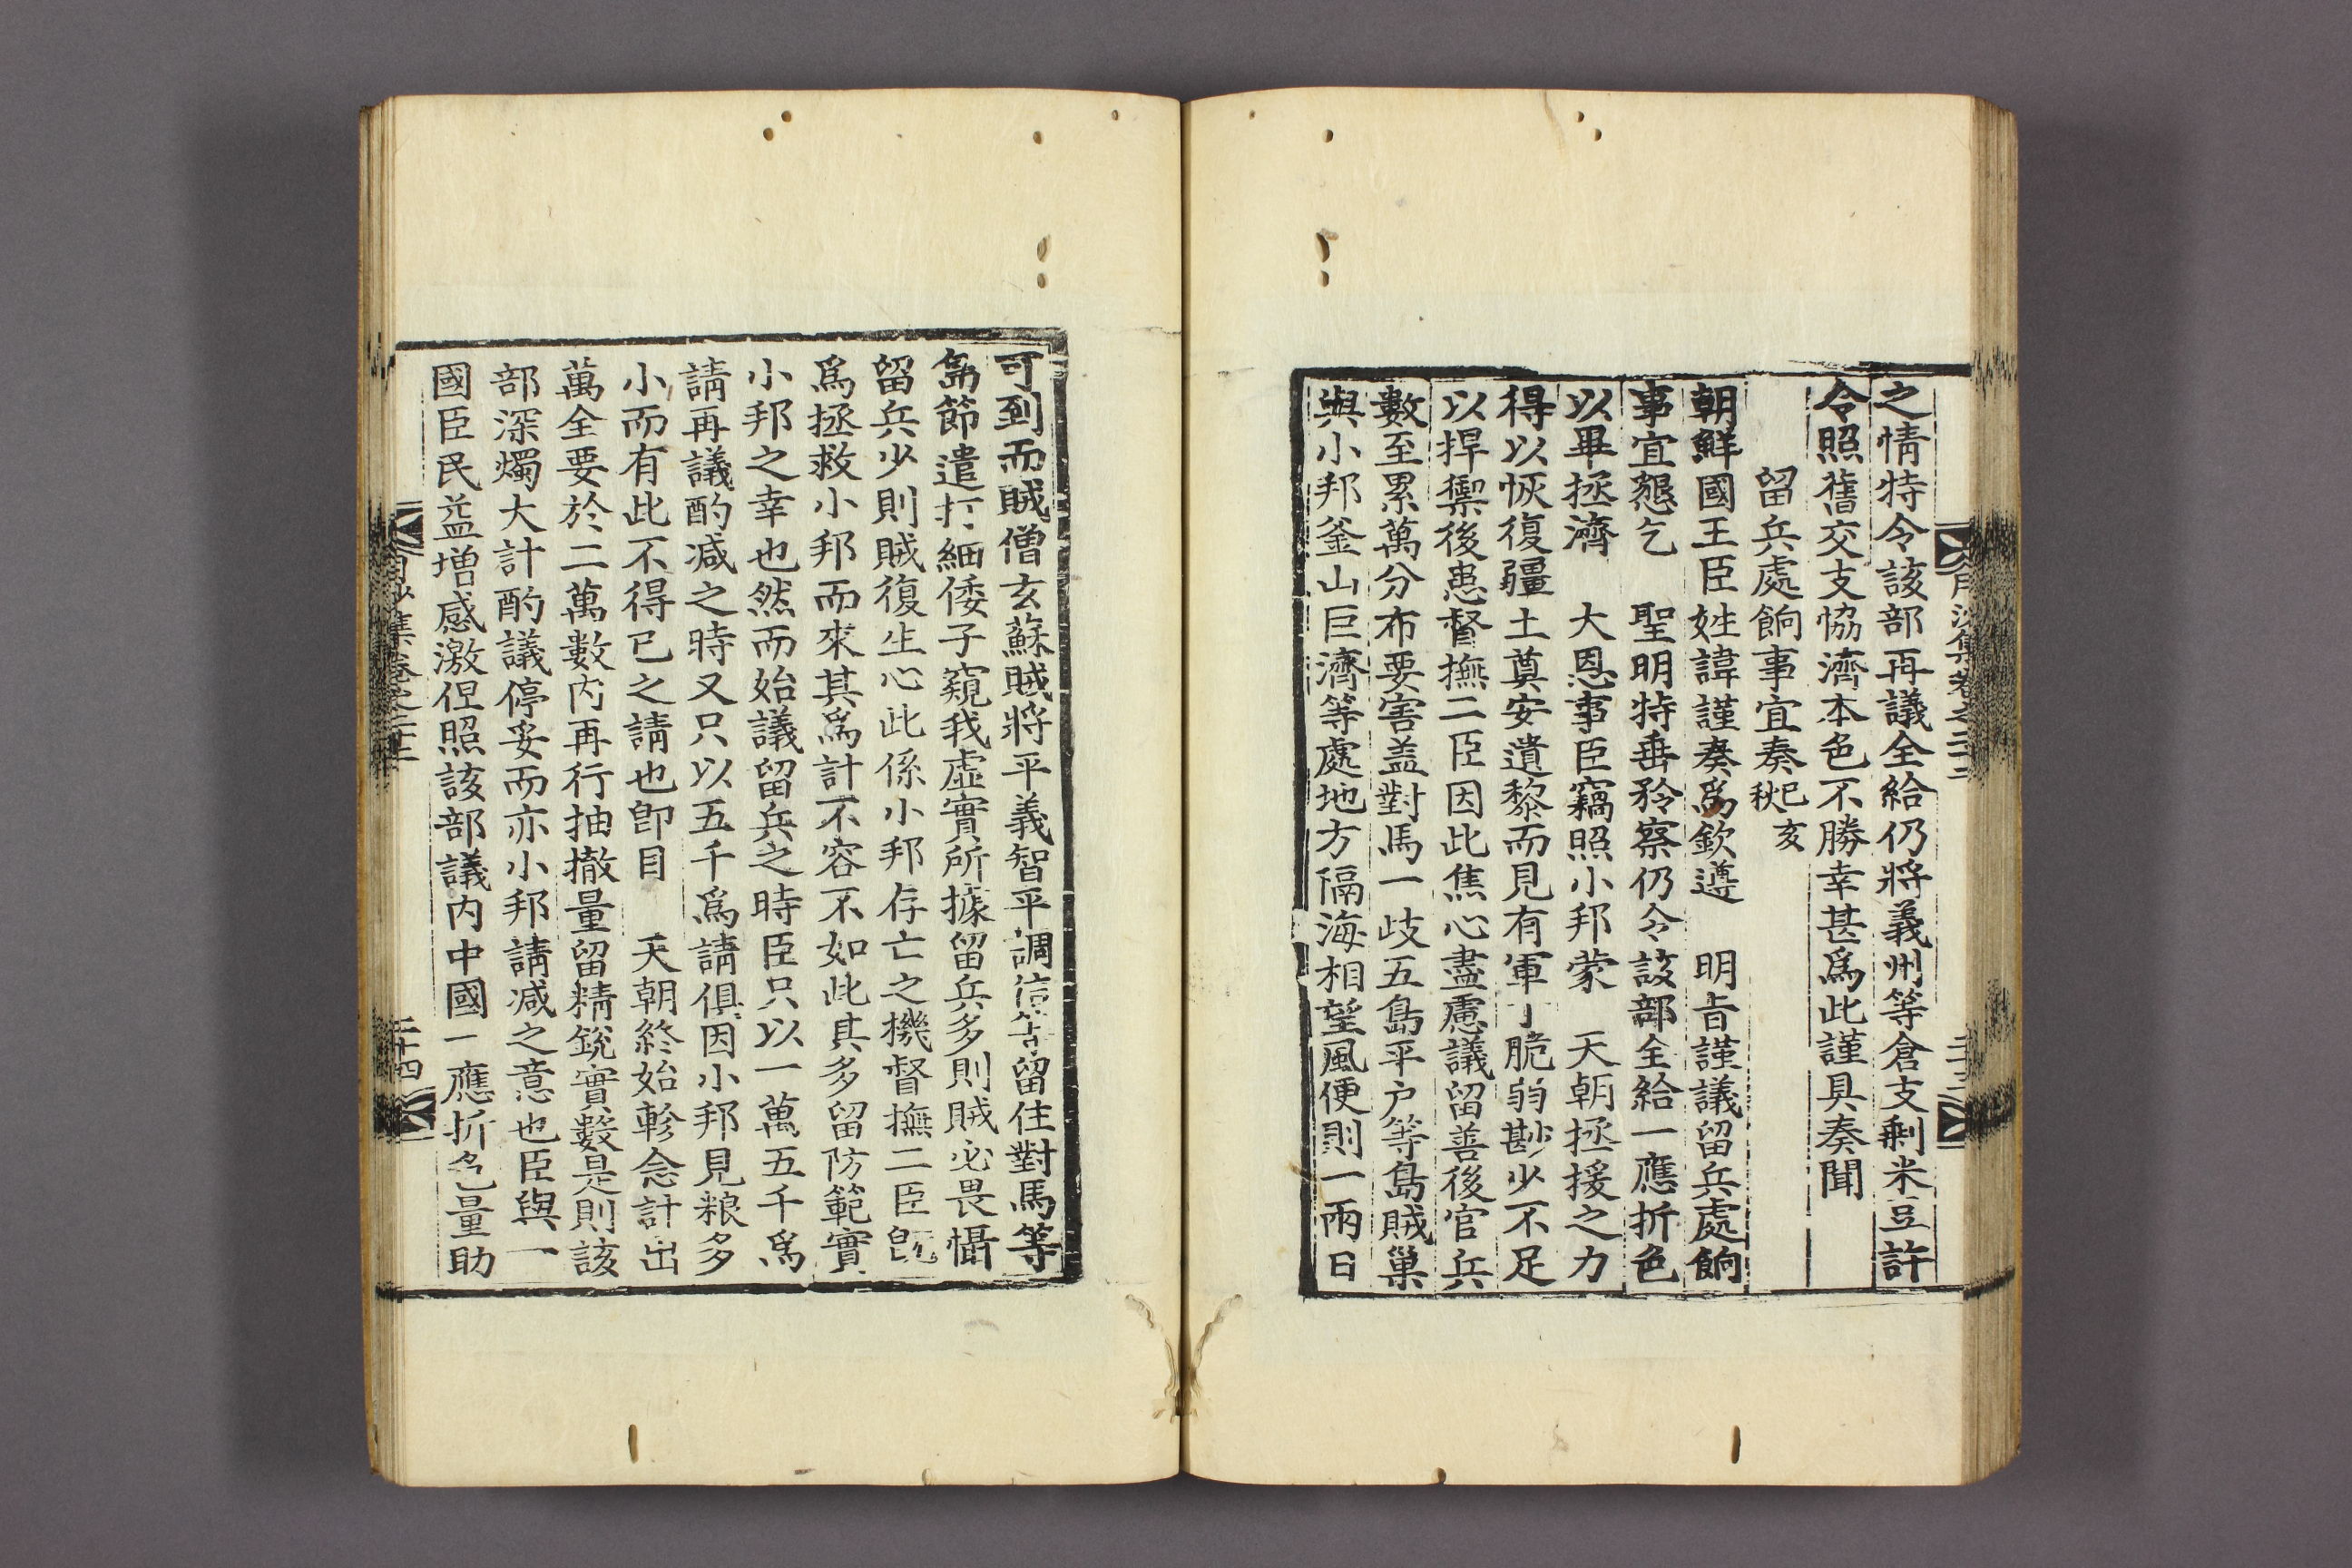 之情特令該部再議全給仍將義州等倉支剩米豆許
令照舊交支協濟本色不勝幸甚爲此謹具奏聞
留兵處餉事宜奏己亥秋
朝鮮國王臣姓諱謹奏爲欽遵 明旨謹議留兵處餉
事宜懇乞 聖明特垂矜察仍令該部全給一應折色
以畢拯濟 大恩事臣竊照小邦蒙 天朝拯援之力
得以恢復疆土奠安遺黎而見有軍丁脆弱尠少不足
以捍禦後患督撫二臣因此焦心盡慮議留善後官兵
數至累萬分布要害盖對馬一歧五島平户等島賊巢
與小邦釜山巨濟等處地方隔海相望風便則一兩日
可到而賊僧玄蘇賊將平義智平調信等留住對馬等
島節遣打細倭子窺我虛實所據留兵多則賊必畏懾
留兵少則賊復生心此係小邦存亡之機督撫二臣旣
爲拯救小邦而來其爲計不容不如此其多留防範實
小邦之幸也然而始議留兵之時臣只以一萬五千爲
請再議酌减之時又只以五千爲請俱因小邦見粮多
小而有此不得已之請也卽目 天朝終始軫念計出
萬全要於二萬數内再行抽撤量留精銳實數是則該
部深燭大計酌議停妥而亦小邦請减之意也臣與一
國臣民益増感激但照該部議内中國一應折色量助
月沙集卷之二十二
二十三
月沙集卷之二十二
二十四